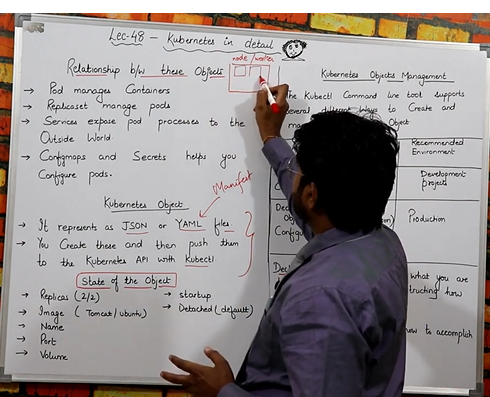 Lec-48 - Kubernetes in detail
node/worker
Relationship b/w these Objects
→ Pod manages Containers
→ Replicaset manage pods
→ Services expose pod processes to the
Outside World
→ Configmaps and Secrets helps you
Configure pods.
Manifest
Kubernetes Object
→ It represents as JSON or YAML files.
→ You Create these and then push them
to the Kubernetes API with Kubectl
State of the Object
→ Replicas (2/2)
→ Image (Tomcat/ubuntu)
→ Name
→ Port
→ Volume
→ startup
→ Detached (default)
Kubernetes Objects Management
The Kubectl Command line tool supports
several different Ways to Create and
Object
Recommended
Environment
Development
projects
Production
what you are
how to accomplish